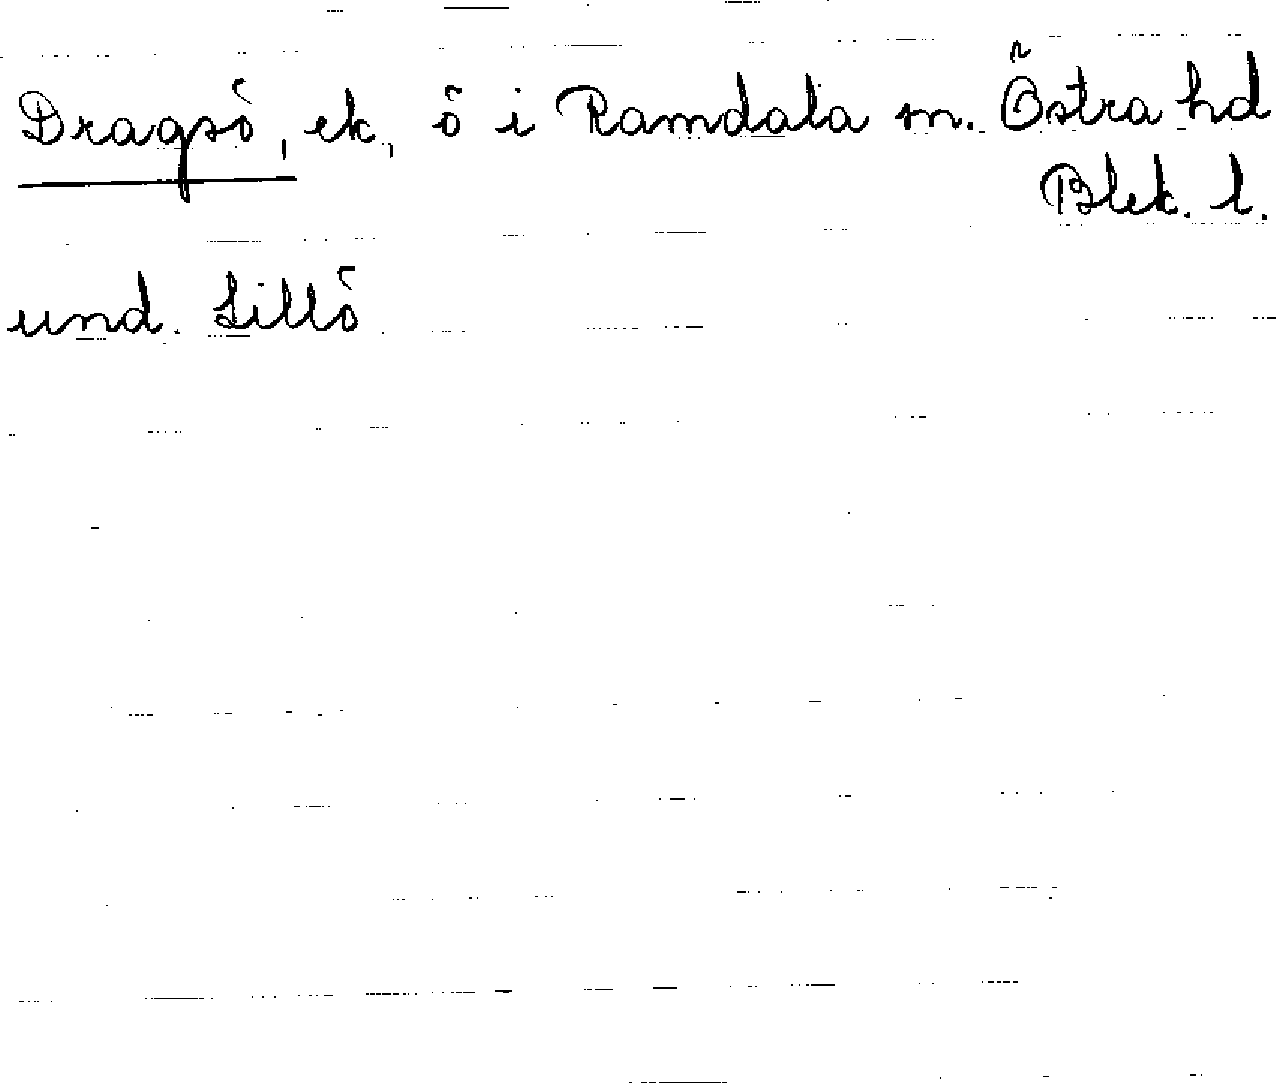 Dragsö, ek, ö i Ramdala sn. Östra hd
Blek. l.
und. Lillö